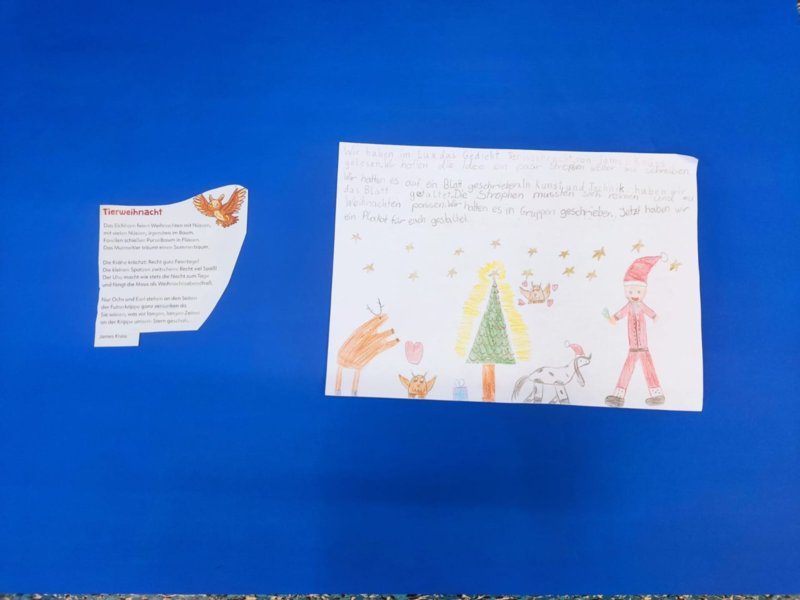 Tierweihnacht
Das Eichhorn feiert Weihnachten mit Nüssen,
mit vielen Nüssen, irgendwo im Baum.
Forellen schießen Purzelbaum in Flüssen.
Das Murmeltier träumt einen Sommertraum.
Die Krähe krächzt: Recht gute Feiertage!
Die kleinen Spatzen zwitschern: Recht viel Spaß!
Der Uhu macht wie stets die Nacht zum Tage
und fängt die Maus als Weihnachtsabendfraß.
Nur Ochs und Esel stehen an den Seiten
der Futterkrippe ganz versunken da.
Sie wissen, was vor langen, langen Zeiten
an der Krippe unterm Stern geschah.
James Krüss
Wir haben im das Gedicht Tierweihnacht von James Krüss
gelesen. Wir hatten die Idee ein paar Strophen selber zu schreiben.
Wir hatten es auf ein Blatt geschrieben. In Kunst und Technik haben wir
das Blatt gestaltet. Die Strophen mussten sich reimen und zu
Weihnachten passen. Wir hatten es in Gruppen geschrieben. Jetzt haben wir
ein Plakat für euch gestaltet.